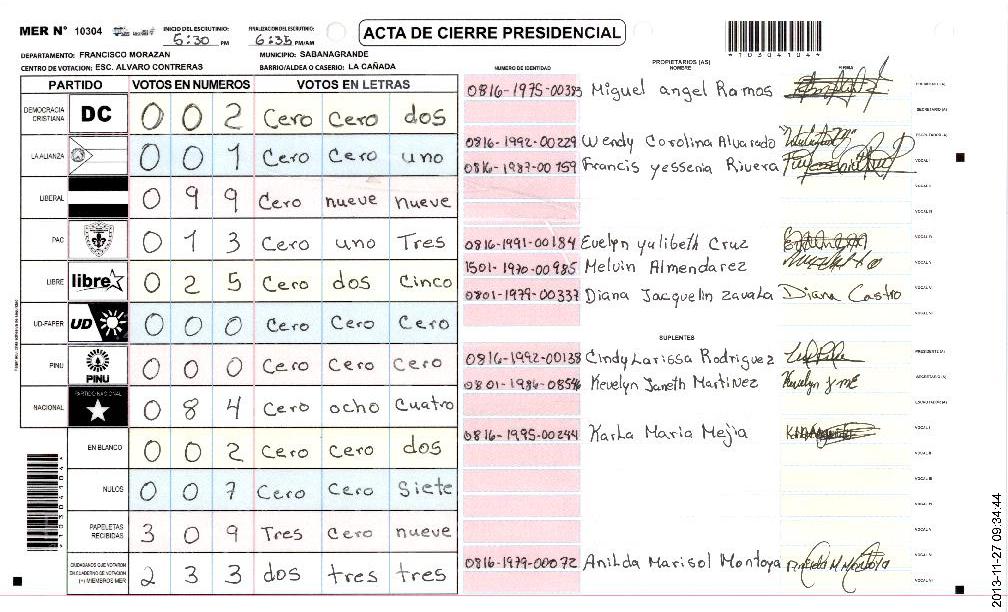 MER N° 10304
INICIO DEL ESCRUTINIO: 5:30 PM
FINALIZACION DEL ESCRUTINIO: 6:35 PM/AM
ACTA DE CIERRE PRESIDENCIAL
*10304104*
DEPARTAMENTO: FRANCISCO MORAZAN
MUNICIPIO: SABANAGRANDE
CENTRO DE VOTACION: ESC. ALVARO CONTRERAS
BARRIO/ALDEA O CASERIO: LA CAÑADA
PARTIDO VOTOS EN NUMEROS VOTOS EN LETRAS
DEMOCRACIA CRISTIANA DC 0 0 2 Cero Cero dos
LA ALIANZA 0 0 1 Cero Cero uno
LIBERAL 0 9 9 Cero nueve nueve
PAC 0 1 3 Cero uno Tres
LIBRE libre 0 2 5 Cero dos Cinco
UD-FAPER UD 0 0 0 Cero Cero Cero
PINU PINU 0 0 0 Cero Cero Cero
NACIONAL PARTIDO NACIONAL 0 8 4 Cero ocho Cuatro
EN BLANCO 0 0 2 Cero Cero dos
NULOS 0 0 7 Cero Cero Siete
PAPELETAS RECIBIDAS 3 0 9 Tres cero nueve
CIUDADANOS QUE VOTARON EN CUADERNO DE VOTACION (+) MIEMBROS MER 2 3 3 dos tres tres
NUMERO DE IDENTIDAD
PROPIETARIOS (AS)
NOMBRE
FIRMA
0816-1975-00383 Miguel angel Ramos PRESIDENTE (A)
SECRETARIO (A)
0816-1992-00229 Wendy Carolina Alvarado ESCRUTADOR (A)
0816-1987-00159 Francis yessenia Rivera VOCAL I
VOCAL II
VOCAL III
0816-1991-00184 Evelyn yulibeth Cruz VOCAL IV
1501-1970-00985 Melvin Almendarez VOCAL V
0801-1979-00337 Diana Jacquelin zavala Diana Castro VOCAL VI
VOCAL VII
SUPLENTES
0816-1992-00138 Cindy Larissa Rodriguez PRESIDENTE (A)
0801-1986-08596 Kevelyn Janeth Martinez SECRETARIO (A)
ESCRUTADOR (A)
0816-1995-00244 Karla Maria Mejia VOCAL I
VOCAL II
VOCAL III
VOCAL IV
VOCAL V
0816-1979-00072 Anilda Marisol Montoya VOCAL VI
VOCAL VII
*10304104*
2013-11-27 09:34:44